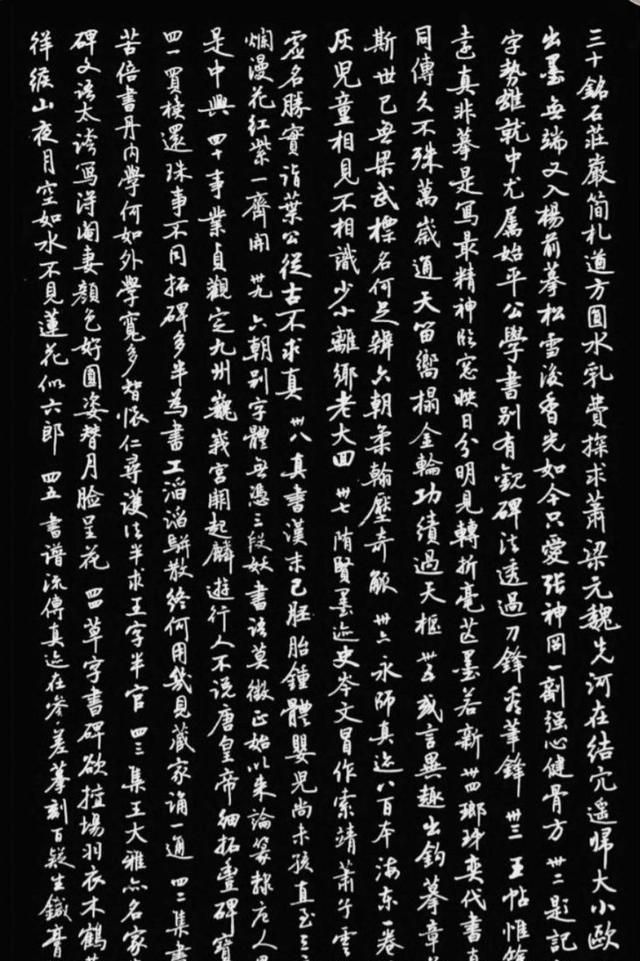 三十銘石莊嚴簡札遒方圓水乳費探求蕭梁元魏先河在結穴遥歸大小歐
出墨無端又入楊前摹松雪後香光如今只愛張神冏一劑强心健骨方 卅二題記
字勢雖就中尤屬始平公學書別有觀碑法透過刀鋒看筆鋒 卅三 王帖惟
遠真非摹是寫最精神臨窗映日分明見轉折毫芒墨若新 卅四瑯玡奕代書
同傳久不殊萬歲通天留響搨金輪功績過天樞 卅五 或言異趣出鈎摹章
斯世已無梁武標名何足辨六朝柔翰壓奇觚 卅六永師真迹八百本海東一卷
灰兒童相見不相識少小離鄉老大回 卅七 隋賢墨迹史岑文冒作索靖蕭子雲
虚名勝實詣葉公從古不求真 卅八 真書漢末已胚胎鍾體嬰兒尚未孩直至三
爛漫花紅紫一齊開 卅九 六朝别字體無憑三段妖書語莫徵正始以来論篆隸唐人
是中興 四十事業貞觀定九州巍峩宫闕起麟遊行人不說唐皇帝細拓豐碑寶
四一買櫝還珠事不同拓碑多半為書工滔滔駢散終何用幾見藏家誦一通 四二集書
苦倍書丹内學何如外學寬多智懷仁尋護法半求王字半官 四三集王大雅亦名家
碑文语太誇寫得閻妻顏色好圓姿替月臉呈花 四四草字書碑欲擅場羽衣木鶴
徉緱山夜月空如水不見蓮花似六郎 四五 書譜流傳真迹在參差摹刻百疑生鍼膏